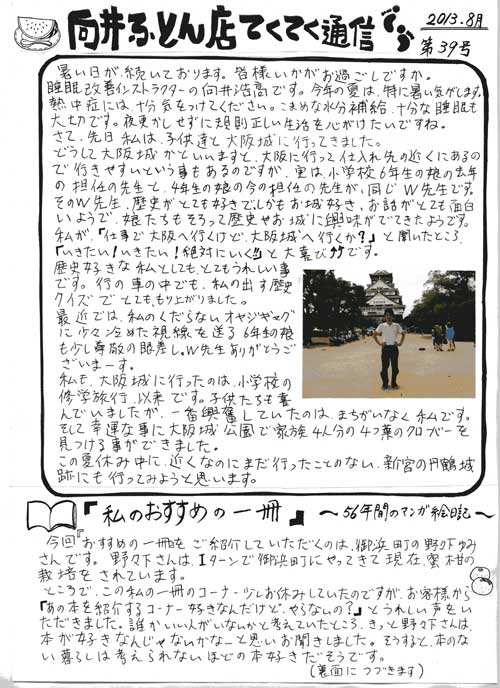 向井ふとん店てくてく通信
2013.8月
第39号
暑い日が、続いております。皆様いかがお過ごしですか。
睡眠改善インストラクターの向井浩高です。今年の夏は、特に暑い気がします。
熱中症には、十分気をつけてください。こまめな水分補給、十分な睡眠も
大切です。夜更かしせずに規則正しい生活を心がけたいですね。
さて、先日私は、子供達と大阪城に行ってきました。
どうして大阪城かといいますと、大阪に行って仕入れ先の近くにあるの
で行きやすいという事もあるのですが、実は、小学校6年生の娘の去年
の担任の先生と、4年生の娘の今の担任の先生が、同じW先生です。
そのW先生、歴史がとても好きでしかもお城好き、お話がとても面白
いようで、娘たちもそろって歴史やお城に興味がでてきたようです。
私が、『仕事で大阪へ行くけど、大阪城へ行くか?』と聞いたところ、
『いきたい!いきたい!絶対にいく!!』と大喜びです。
歴史好きな私としても、とてもうれしい事
です。行の車の中でも、私の出す歴史
クイズでとてももり上がりました。
最近では、私のくだらないオヤジギャグ
に少々冷めた視線を送る6年生の娘
も少し尊敬の眼差し。W先生ありがとうご
ざいまーす。
私も、大阪城に行ったのは、小学校の
修学旅行以来です。子供たちも喜
んでいましたが、一番興奮していたのは、まちがいなく私です。
そして幸運な事に大阪城公園で家族4人分の4つ葉のクローバーを
見つける事ができました。
この夏休み中に、近くなのにまだ行ったことのない、新宮の丹鶴城
跡にも行ってみようと思います。
『私のおすすめの一冊』 ～56年間のマンガ絵日記～
今回『おすすめの一冊』をご紹介していただくのは、御浜町の野下ゆみ
さんです。野々下さんは、Iターンで御浜町にやってきて現在、蜜柑の
栽培をされています。
ところで、この私の一冊のコーナー少しお休みしていたのですが、お客様から
『あの本を紹介するコーナー好きなんだけど、やらないの?』とうれしい声をい
ただきました。誰かいい人がいないかなと考えていたところ、きっと野々下さんは、
本が好きなんじゃないかなーと思いお聞きしました。そうすると、本のな
い暮らしは考えられないほどの本好きだそうです。
(裏面につづきます)